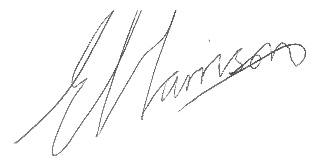 E Harrison